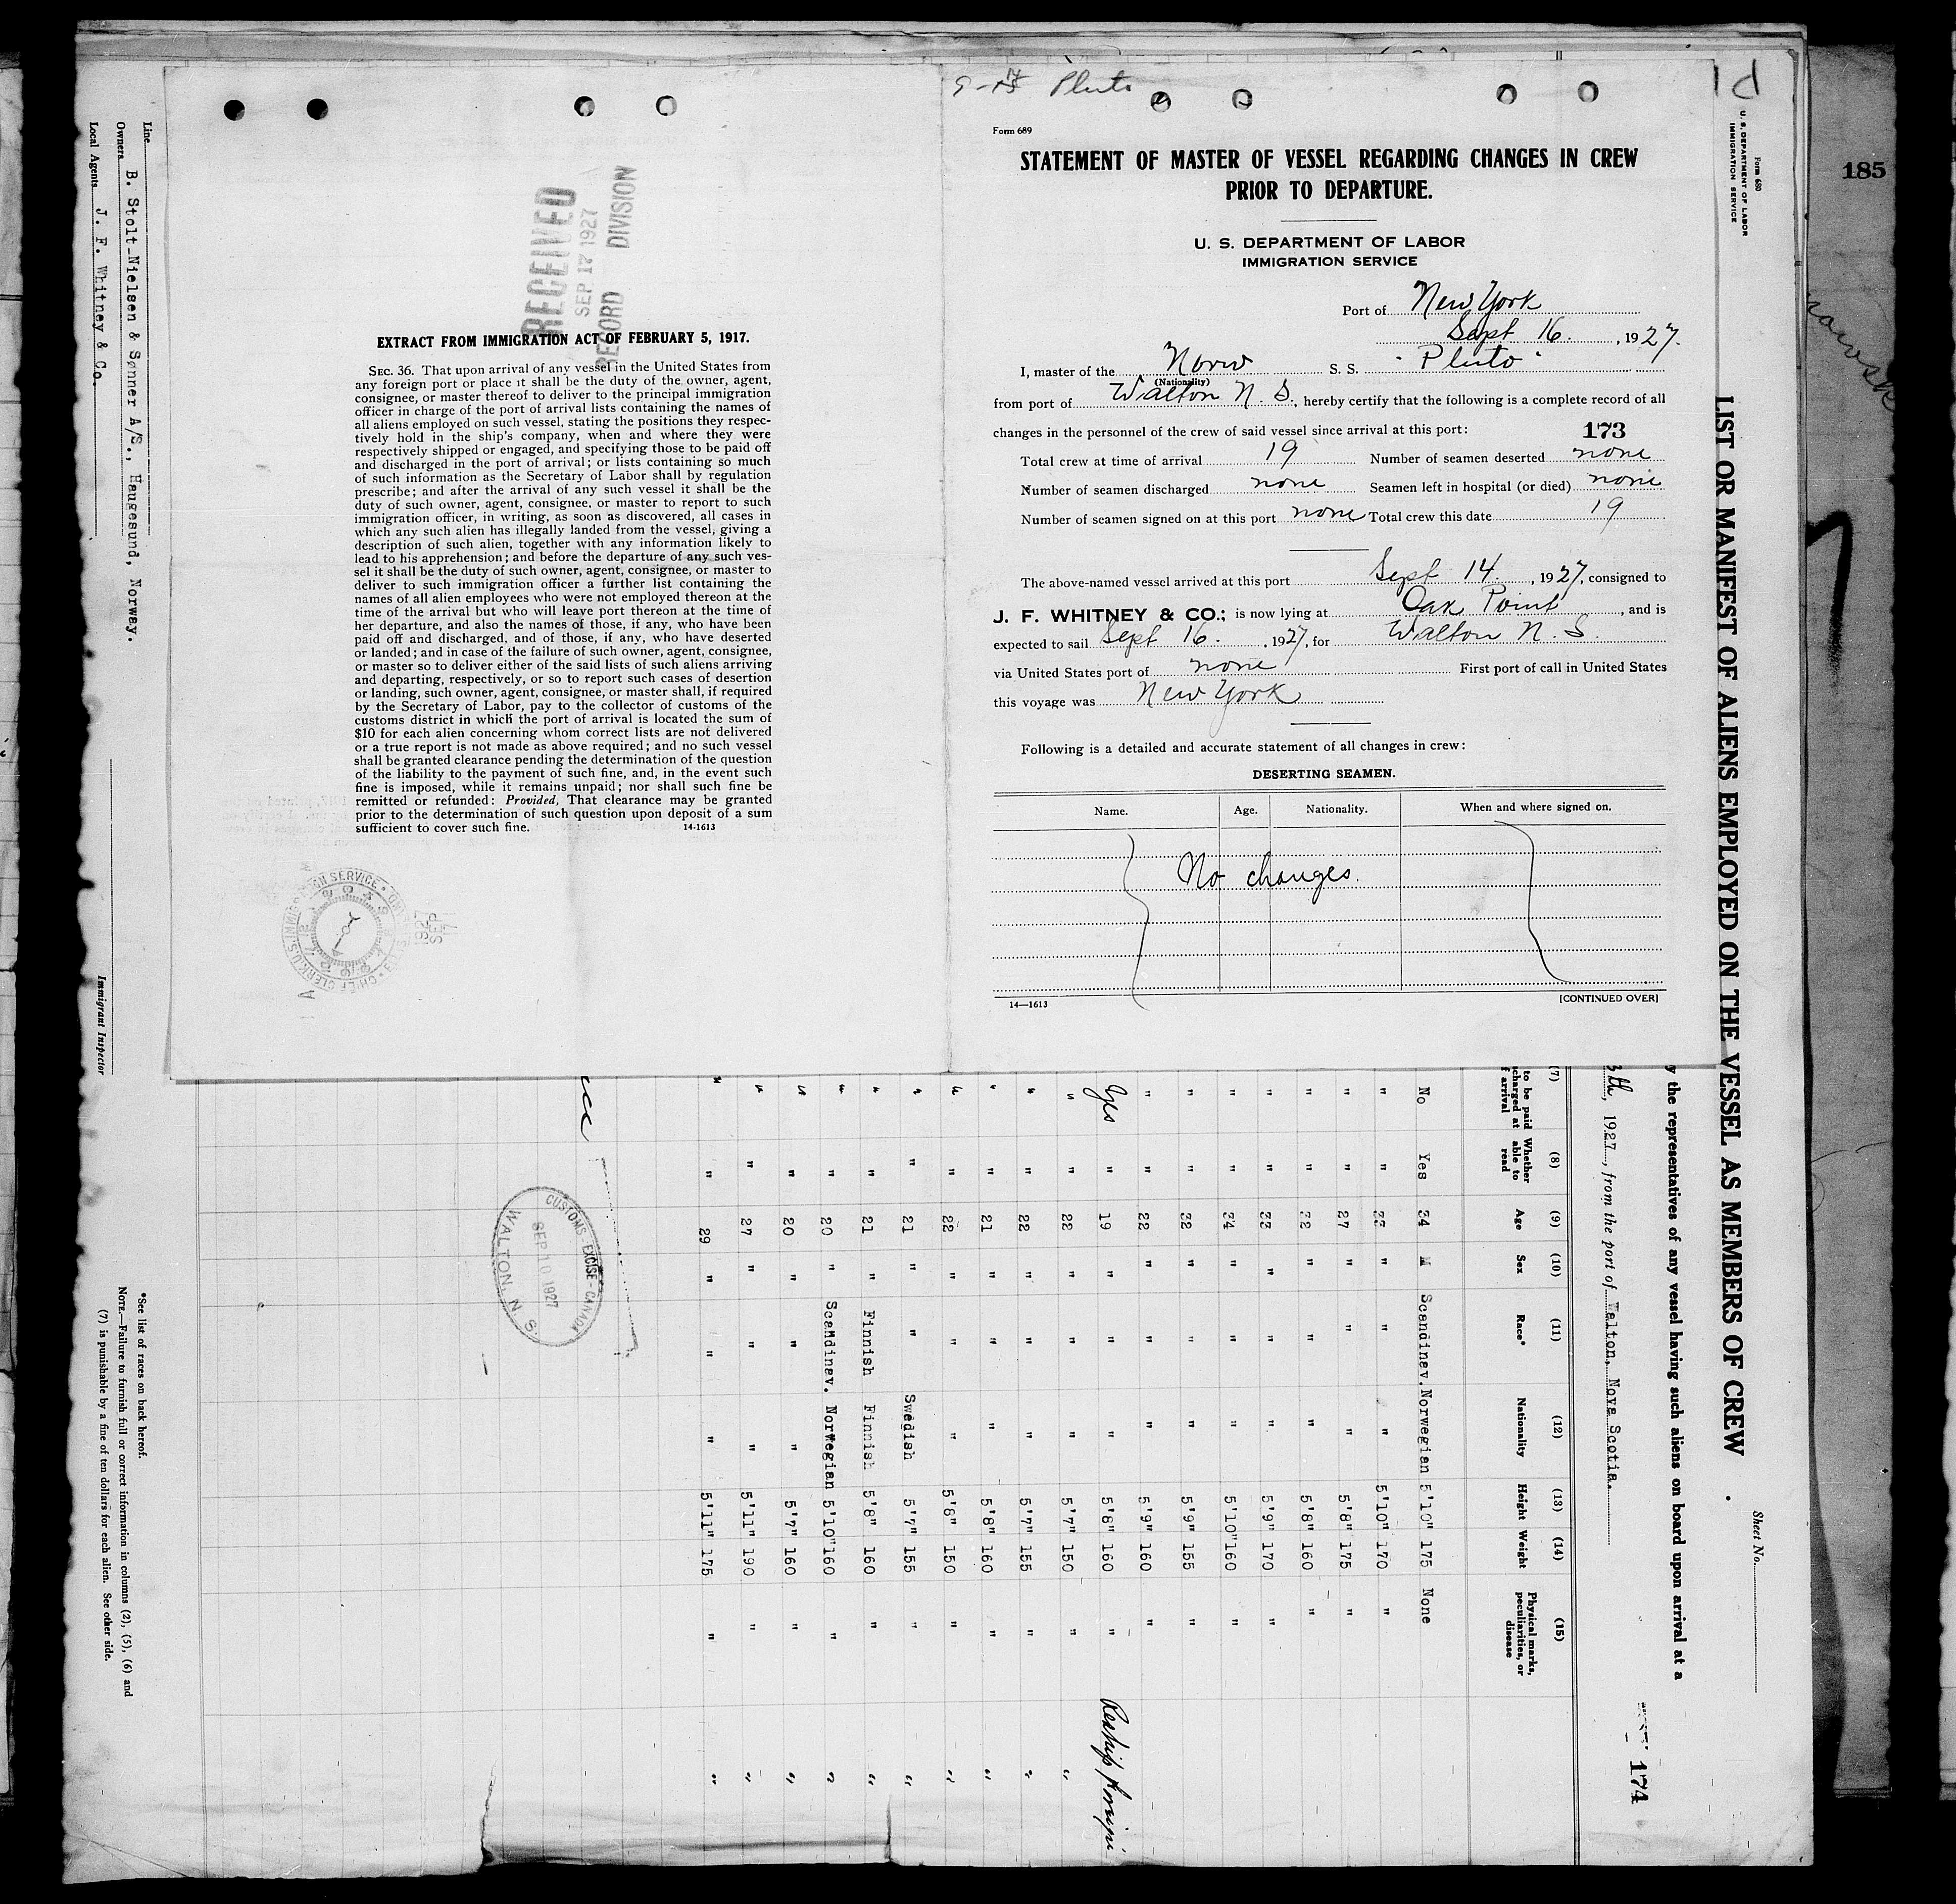 9-15 Pluto
Form 689
STATEMENT OF MASTER OF VESSEL REGARDING CHANGES IN CREW
PRIOR TO DEPARTURE.
U. S. DEPARTMENT OF LABOR
IMMIGRATION SERVICE
Port of New York
Sept 16. , 1927.
I, master of the Norw S. S. "Pluto"
(Nationality)
from port of Walton N. S., hereby certify that the following is a complete record of all
changes in the personnel of the crew of said vessel since arrival at this port:
173
Total crew at time of arrival 19 Number of seamen deserted none
Number of seamen discharged none Seamen left in hospital (or died) none
Number of seamen signed on at this port none Total crew this date 19
The above-named vessel arrived at this port Sept 14. , 1927, consigned to
J. F. WHITNEY & CO.; is now lying at Oak Point , and is
expected to sail Sept 16. , 1927, for Walton N. S.
via United States port of none First port of call in United States
this voyage was New York
Following is a detailed and accurate statement of all changes in crew:
DESERTING SEAMEN.
Name. Age. Nationality. When and where signed on.
No changes.
14—1613 [CONTINUED OVER]
RECEIVED
SEP 17 1927
RECORD DIVISION
EXTRACT FROM IMMIGRATION ACT OF FEBRUARY 5, 1917.
SEC. 36. That upon arrival of any vessel in the United States from
any foreign port or place it shall be the duty of the owner, agent,
consignee, or master thereof to deliver to the principal immigration
officer in charge of the port of arrival lists containing the names of
all aliens employed on such vessel, stating the positions they respec-
tively hold in the ship's company, when and where they were
respectively shipped or engaged, and specifying those to be paid off
and discharged in the port of arrival; or lists containing so much
of such information as the Secretary of Labor shall by regulation
prescribe; and after the arrival of any such vessel it shall be the
duty of such owner, agent, consignee, or master to report to such
immigration officer, in writing, as soon as discovered, all cases in
which any such alien has illegally landed from the vessel, giving a
description of such alien, together with any information likely to
lead to his apprehension; and before the departure of any such ves-
sel it shall be the duty of such owner, agent, consignee, or master to
deliver to such immigration officer a further list containing the
names of all alien employees who were not employed thereon at the
time of the arrival but who will leave port thereon at the time of
her departure, and also the names of those, if any, who have been
paid off and discharged, and of those, if any, who have deserted
or landed; and in case of the failure of such owner, agent, consignee,
or master so to deliver either of the said lists of such aliens arriving
and departing, respectively, or so to report such cases of desertion
or landing, such owner, agent, consignee, or master shall, if required
by the Secretary of Labor, pay to the collector of customs of the
customs district in which the port of arrival is located the sum of
$10 for each alien concerning whom correct lists are not delivered
or a true report is not made as above required; and no such vessel
shall be granted clearance pending the determination of the question
of the liability to the payment of such fine, and, in the event such
fine is imposed, while it remains unpaid; nor shall such fine be
remitted or refunded: Provided, That clearance may be granted
prior to the determination of such question upon deposit of a sum
sufficient to cover such fine. 14-1613
185
Form 680
U. S. DEPARTMENT OF LABOR
IMMIGRATION SERVICE
Sheet No.
LIST OR MANIFEST OF ALIENS EMPLOYED ON THE VESSEL AS MEMBERS OF CREW
the representatives of any vessel having such aliens on board upon arrival at a
, 1927, from the port of Walton, Nova Scotia.
174
(7) (8) (9) (10) (11) (12) (13) (14) (15)
to be paid Whether able to read Age Sex Race* Nationality Height Weight Physical marks, peculiarities, or disease
No Yes 34 M Scandinav. Norwegian 5'10" 175 None
" " 33 " " " 5'10" 170 "
" " 27 " " " 5'8" 175 "
" " 32 " " " 5'8" 160 "
" " 33 " " " 5'9" 170 "
" " 34 " " " 5'10" 160 "
" " 32 " " " 5'9" 155 "
" " 22 " " " 5'9" 160 "
Yes " 19 " " " 5'8" 160 " Reship foreign
" " 22 " " " 5'7" 150 " "
" " 22 " " " 5'7" 155 " "
" " 21 " " " 5'8" 160 " "
" " 22 " " " 5'8" 150 " "
" " 21 " " Swedish 5'7" 155 " "
" " 21 " Finnish Finnish 5'8" 160 " "
" " 20 " Scandinav. Norwegian 5'10" 160 " "
" " 20 " " " 5'7" 160 " "
" " 27 " " " 5'11" 190 " "
" " 29 " " " 5'11" 175 " "
CUSTOMS - EXCISE - CANADA
SEP 10 1927
WALTON, N. S.
Line
Owners B. Stolt-Nielsen & Sønner A/S., Haugesund, Norway.
Local Agents J. F. Whitney & Co.
Immigrant Inspector
*See list of races on back hereof.
NOTE.—Failure to furnish full or correct information in columns (2), (5), (6) and
(7) is punishable by a fine of ten dollars for each alien. See other side.